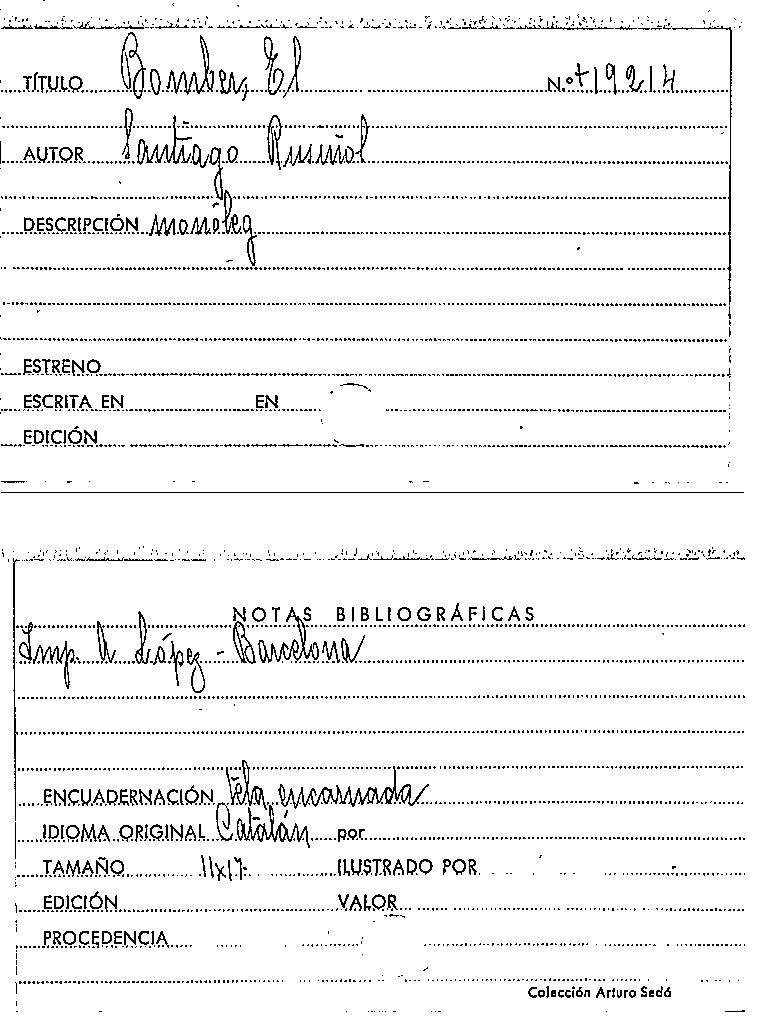 TÍTULO Bomber, El N.º +19214
AUTOR Santiago Rusiñol
DESCRIPCIÓN monòleg
ESTRENO
ESCRITA EN EN
EDICIÓN
NOTAS BIBLIOGRÁFICAS
Imp. A López - Barcelona
ENCUADERNACIÓN Tela encarnada
IDIOMA ORIGINAL Catalán por
TAMAÑO 11x17 ILUSTRADO POR
EDICIÓN VALOR
PROCEDENCIA
Colección Arturo Sedó